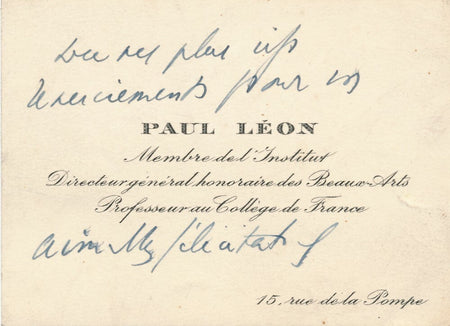 avec ses plus vifs
remerciements pour vos
PAUL LÉON
Membre de l'Institut
Directeur général honoraire des Beaux-Arts
Professeur au Collège de France
aimables félicitations
15, rue de la Pompe